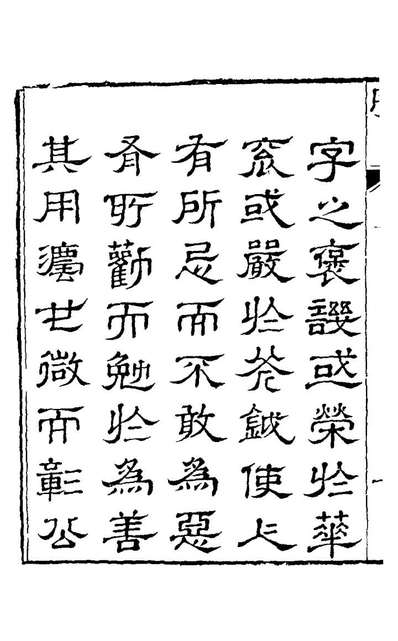 字之褒譏或榮於華
袞或嚴於斧鉞使上
有所忌而不敢為惡
有所勸而勉於為善
其用灋甚微而彰公